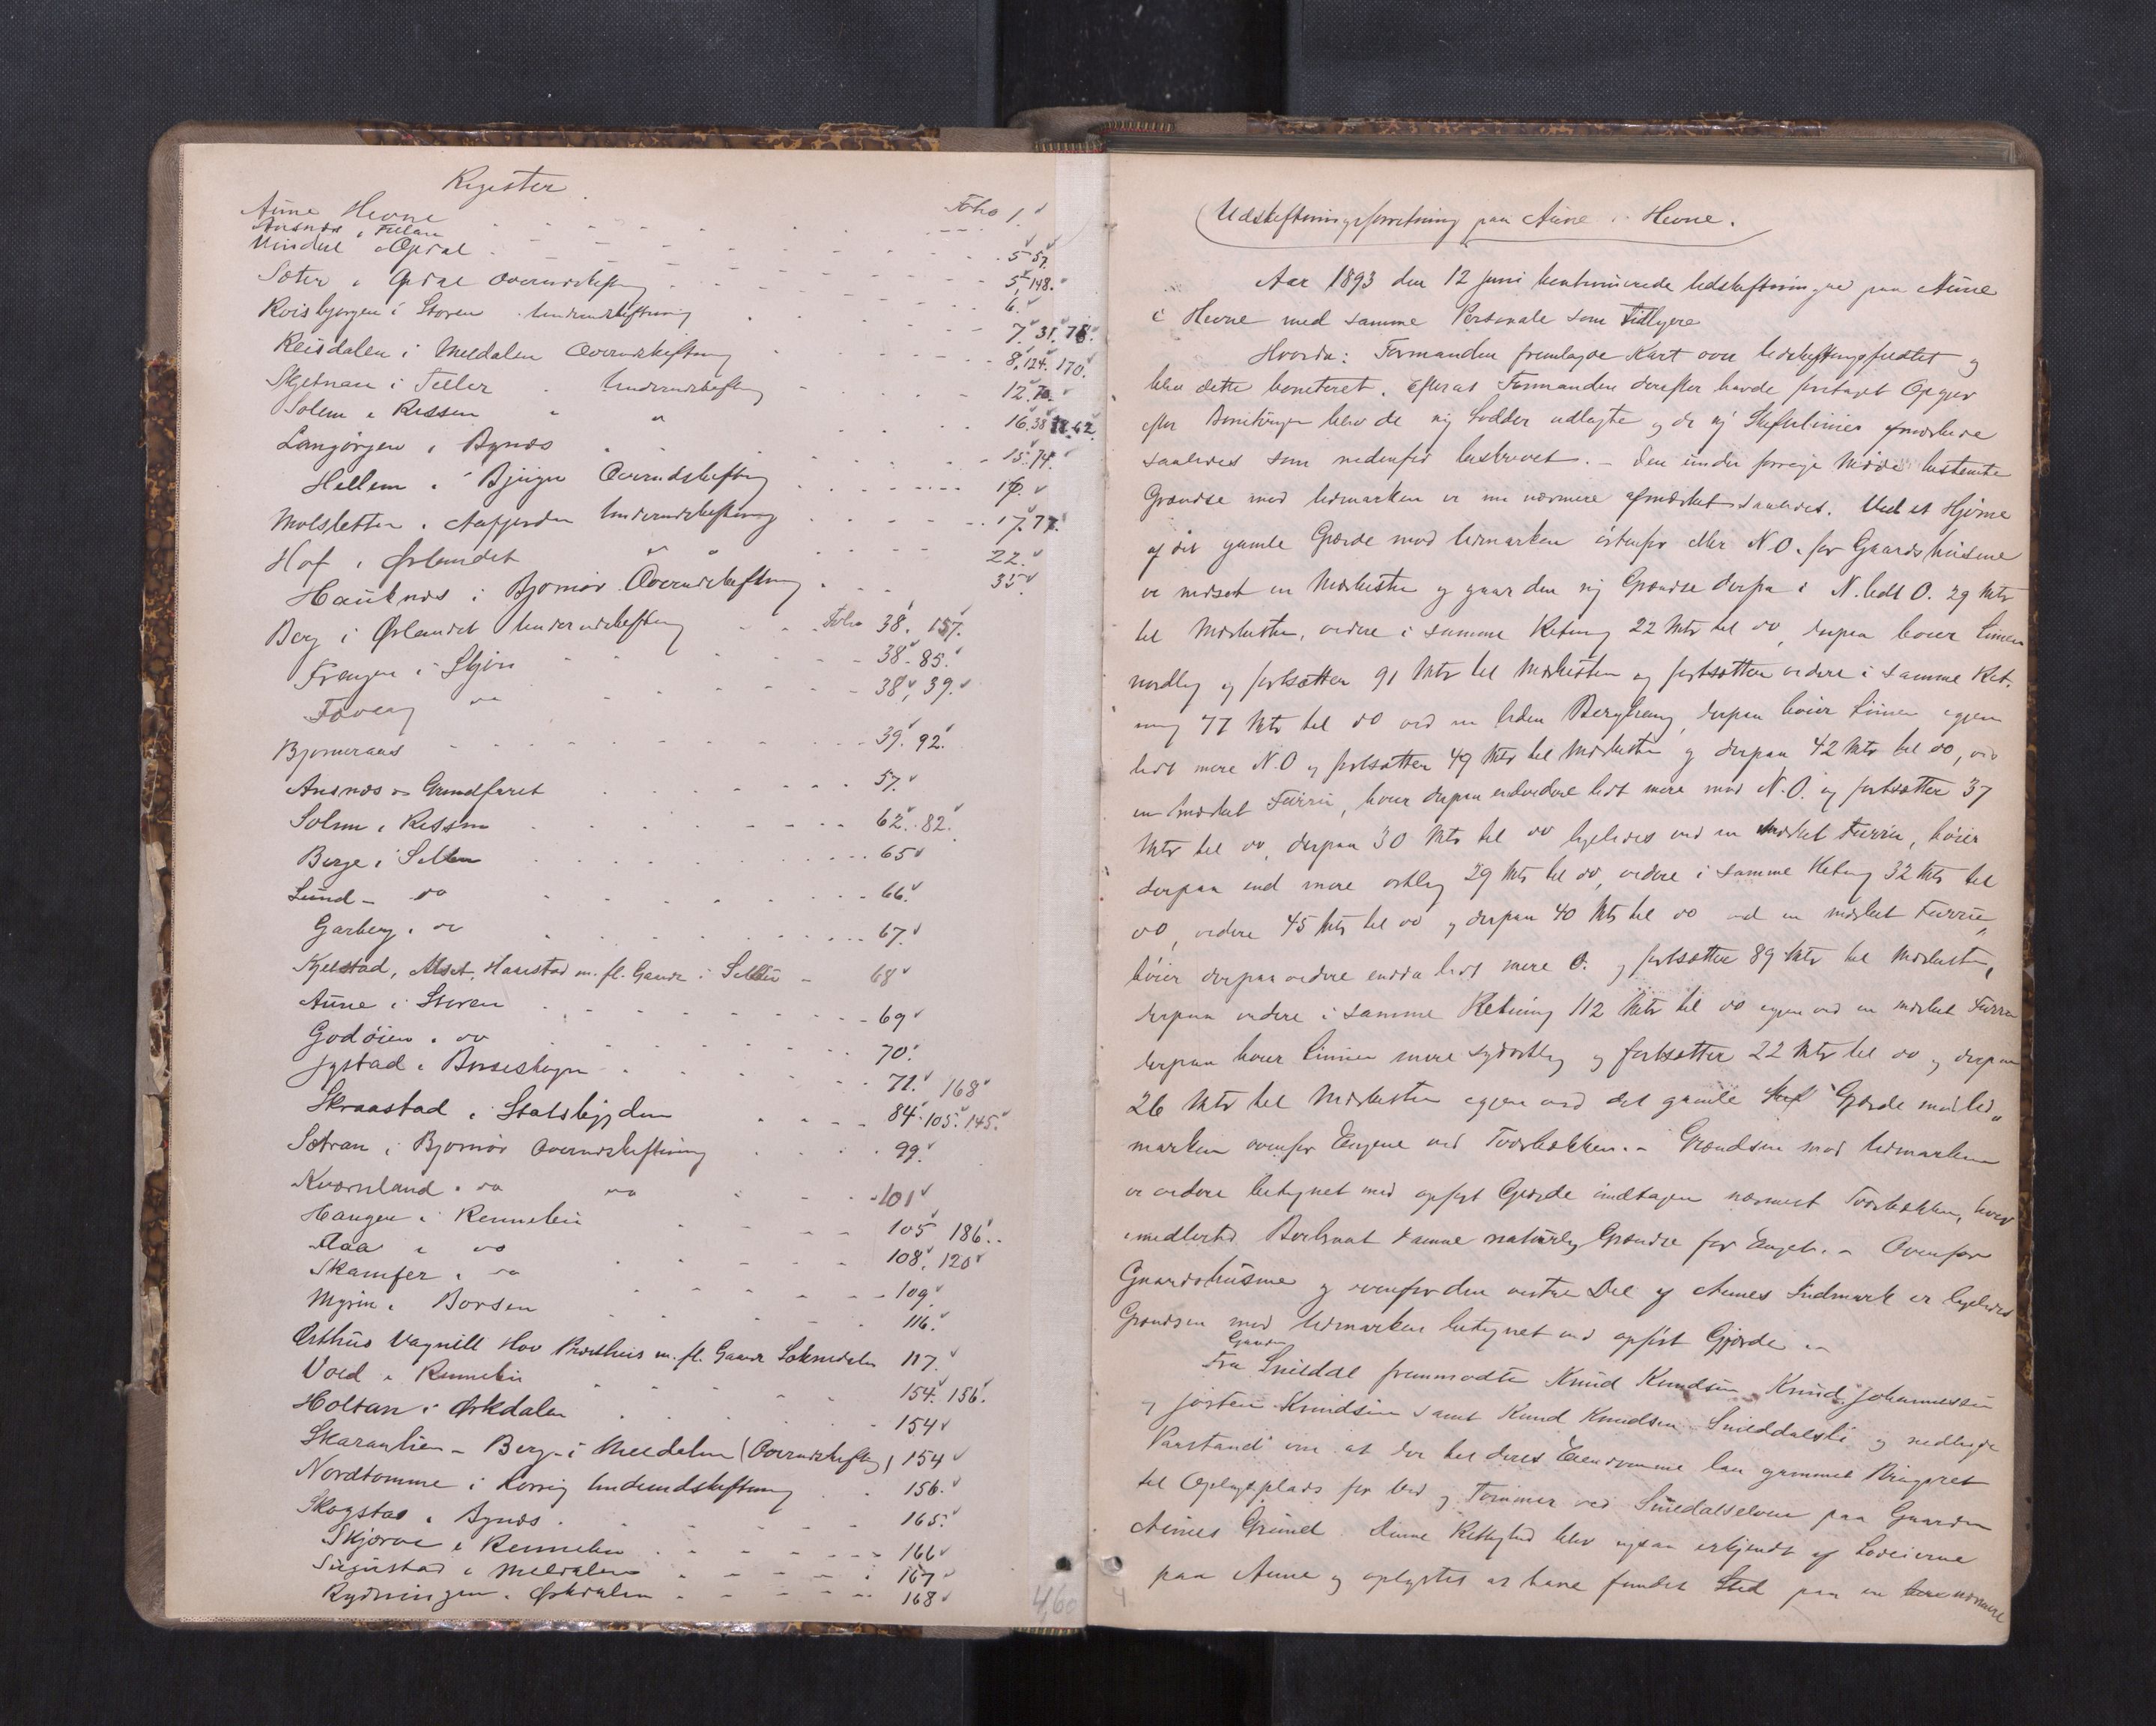 Register
Aune Hevne Folio 1.
Ausnes i Fillan 57.
Vindal i Opdal 5, 148.
Sæter i Opdal Overudskiftng 6.
Roisbjorgen i Storen Underudskiftning 7. 31. 78.
Reisdalen i Meldalen Overudskiftning 8, 124. 170.
Skjetnan i Tiller Underudskiftng 12. 70.
Solem i Rissen " 16. 38. 62.
Langørgen i Bynes 15. 74.
Hellem i Bjugn Overudskiftng 16.
Molsletten i Aafjorden Underudskiftning 17. 77.
Hof i Ørlandet " " 22.
Hauknes i Bjørnør Overudskiftng 35.
Berg i Ørlandet Underudskiftng Folio 38. 157.
Frengen i Skjørn 38. 85.
do 38, 39.
Bjørneraas 39. 92.
Ausnes o Grundfaret 57.
Solem i Rissen 62. 82.
Berge i Selbu 65
Lund - do 66.
Garberg i do 67.
Kjelstad, Alset, Harstad m. fl. Gaarde i Selbu - 68
Aune i Storen 69
Godøien i do 70.
Jystad i Børseskogn 71. 168
Skraastad i Stadsbygden 84. 105. 145.
Sætran i Bjørnør Overudskiftning 99.
Kvernland i do do 101
Haugen i Rennebu 105 186.
Aaa i do 108. 120
Skamfer i do 109.
Myren i Børsen 116.
Østhus Vagnild Hov Presthus m. fl. Gaarde Soknedalen 117.
Vold i Rennebu 154. 156.
Holtan i Ørkdalen 154
Skaranlien - Berg i Meldalen (Overudskiftng) 154
Nordtomme i Horrig Underudskiftning 156.
Skogstad i Bynes 165.
Skjerve i Rennebu 166
Sugustad i Meldalen 167
Rydningen i Ørkdalen 168
4,60
Udskiftningsforretning paa Aune i Hevne.
Aar 1893 den 12 Juni kontinuerede Udskiftningen paa Aune
i Hevne med samme Personale som tidligere
Hvorda: Formanden fremlagde Kart over Udskiftningsfeltet og
blev dette boniteret. Efterat Formanden derefter havde foretaget Opgjør
efter Boniteringen blev de ny Lodder udlagte og de ny Skiftelinier afmerkede
saaledes som nedenfor beskrevet. - Den under forrige Møde bestemte
Grændse mod Udmarken er nu nærmere afmerket saaledes. Ved et Hjørne
af det gamle Gjerde mod Udmarken østenfor eller N.O. for Gaardshusene
er nedsat en Merkesten og gaar den ny Grændse derfra i N. lidt O. 29 Mtr
til Merkesten, videre i samme Retning 22 Mtr til do, derpaa bøier Linien
nordlig og fortsætter 91 Mtr til Merkesten og fortsætter videre i samme Ret-
ning 77 Mtr til do ved en liden Berghang, derpaa bøier Linien igjen
lidt mere N.O og fortsætter 49 Mtr til Merkesten og derpaa 42 Mtr til do, ved
en merket Furru, bøier derpaa endvidere lidt mere mod N.O. og fortsætter 37
Mtr til do, derpaa 30 Mtr til do ligeledes ved en merket Furru, bøier
derpaa end mere østlig 29 Mtr til do, videre i samme Retning 32 Mtr til
do, videre 45 Mtr til do og derpaa 40 Mtr til do ved en merket Furru,
bøier derpaa videre endda lidt mere O. og fortsætter 89 Mtr til Merkesten,
derpaa videre i samme Retning 112 Mtr til do igjen ved en merket Furru
derpaa bøier Linien mere sydostlig og fortsætter 22 Mtr til do og derpaa
26 Mtr til Merkesten igjen ved det gamle Gjerde mod Ud„
marken ovenfor Engene ved Tverbækken. - Grændsen mod Udmarken
er videre betegnet med opført Gjerde indtagen nærmest Tverbækken, hvor
imedlertid Berhavet danne naturlig Grændse for Enget. - Ovenfor
Gaardshusene og ovenfor den vestre Del af Aunes Indmark er ligeledes
Grændsen mod Udmarken betegnet ved opført Gjerde. -
Fra Gaarden Snildal fremmødte Knud Knudsen, Knud Johannessen
og Josten Knudsen samt Knud Knudsen Snilddalsli og nedlagde
Paastand om at der til deres Eiendomme laa gammel Brugsret
til Oplagsplads for Ved og Tømmer ved Snildalselven paa Gaarden
Aunes Grund. Denne Rettighed blev ogsaa erkjendt af Lodeierne
paa Aune og oplystes at have fundet Sted paa en nærmere
4